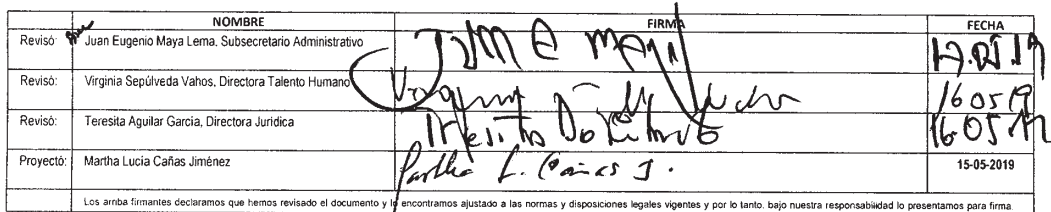 NOMBRE FIRMA FECHA
Revisó: Juan Eugenio Maya Lema, Subsecretario Administrativo
Revisó: Virginia Sepúlveda Vahos, Directora Talento Humano 16 05 19
Revisó: Teresita Aguilar García, Directora Jurídica 16 05 19
Proyectó: Martha Lucía Cañas Jiménez Martha L. Cañas J. 15-05-2019
Los arriba firmantes declaramos que hemos revisado el documento y lo encontramos ajustado a las normas y disposiciones legales vigentes y por lo tanto, bajo nuestra responsabilidad lo presentamos para firma.